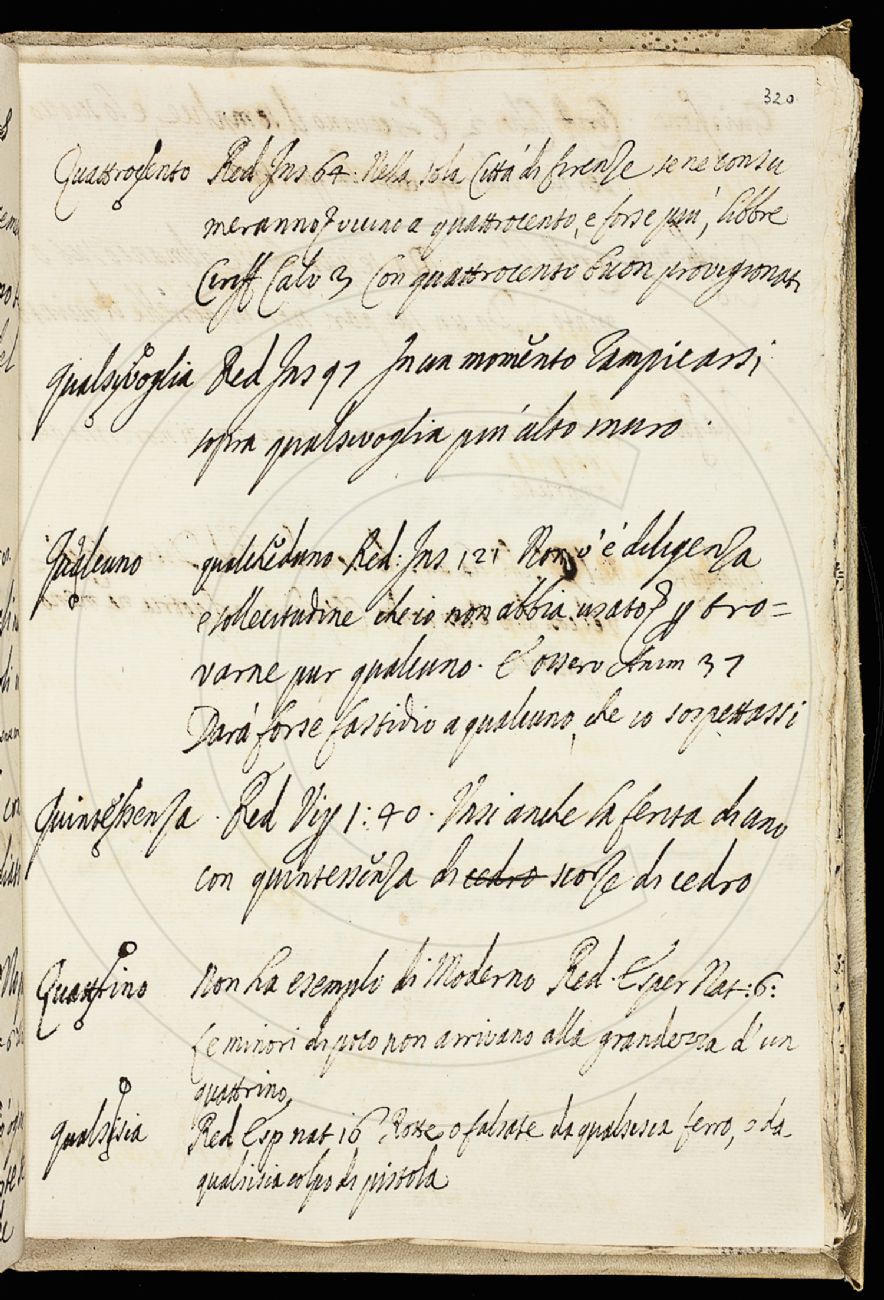 320
Quattrocento Red Ins 64. Nella sola Città di firenze se ne consu
meranno vicino a quattrocento, e forse più, libbre
Ciriff Calv 3 Con quattrocento buon provigionati
qualsivoglia Red Ins 97 In un momento rampicarsi
sopra qualsivoglia più alto muro.
Qualcuno qualcheduno. Red: Ins 121 Non v'è diligenza
e sollecitudine che io non abbia usato p tro=
varne pur qualcuno. E osserv Anim 37
Darà forse fastidio a qualcuno, che io sospettassi
Quintessenza. Red Vip 1: 40. Unsi anche la ferita di uno
con quintessenza di cedro scorze di cedro
Quattrino Non ha esemplo di Moderno Red. Esper Nat: 6:
Le minori di poco non arrivano alla grandezza d'un
quattrino,
qualsisia Red Esp nat 16 Rotte, o falsate da qualsisia ferro, o da
qualsisia colpo di pistola